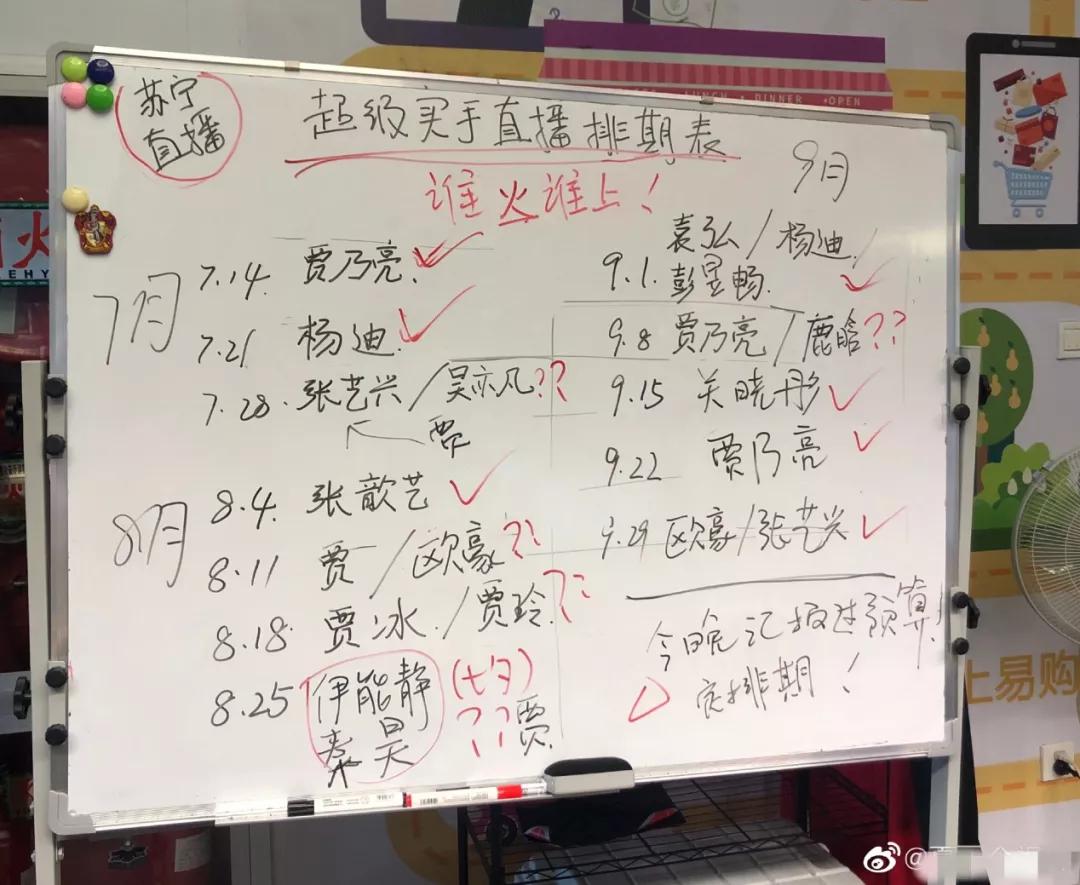 苏宁
直播
超级买手直播排期表
谁火谁上!
7月
7.14. 贾乃亮
7.21 杨迪
7.28. 张艺兴/吴亦凡??
贾
8月
8.4. 张歆艺
8.11 贾/欧豪?!
8.18 贾冰/贾玲??
8.25 伊能静
秦昊
(七夕)
??贾
9月
9.1. 袁弘/杨迪/
彭昱畅
9.8 贾乃亮/鹿晗??
9.15 关晓彤
9.22 贾乃亮
9.29 欧豪/张艺兴
今晚记报过预算!
定排期!
LUNCH • DINNER • OPEN
火
上易购